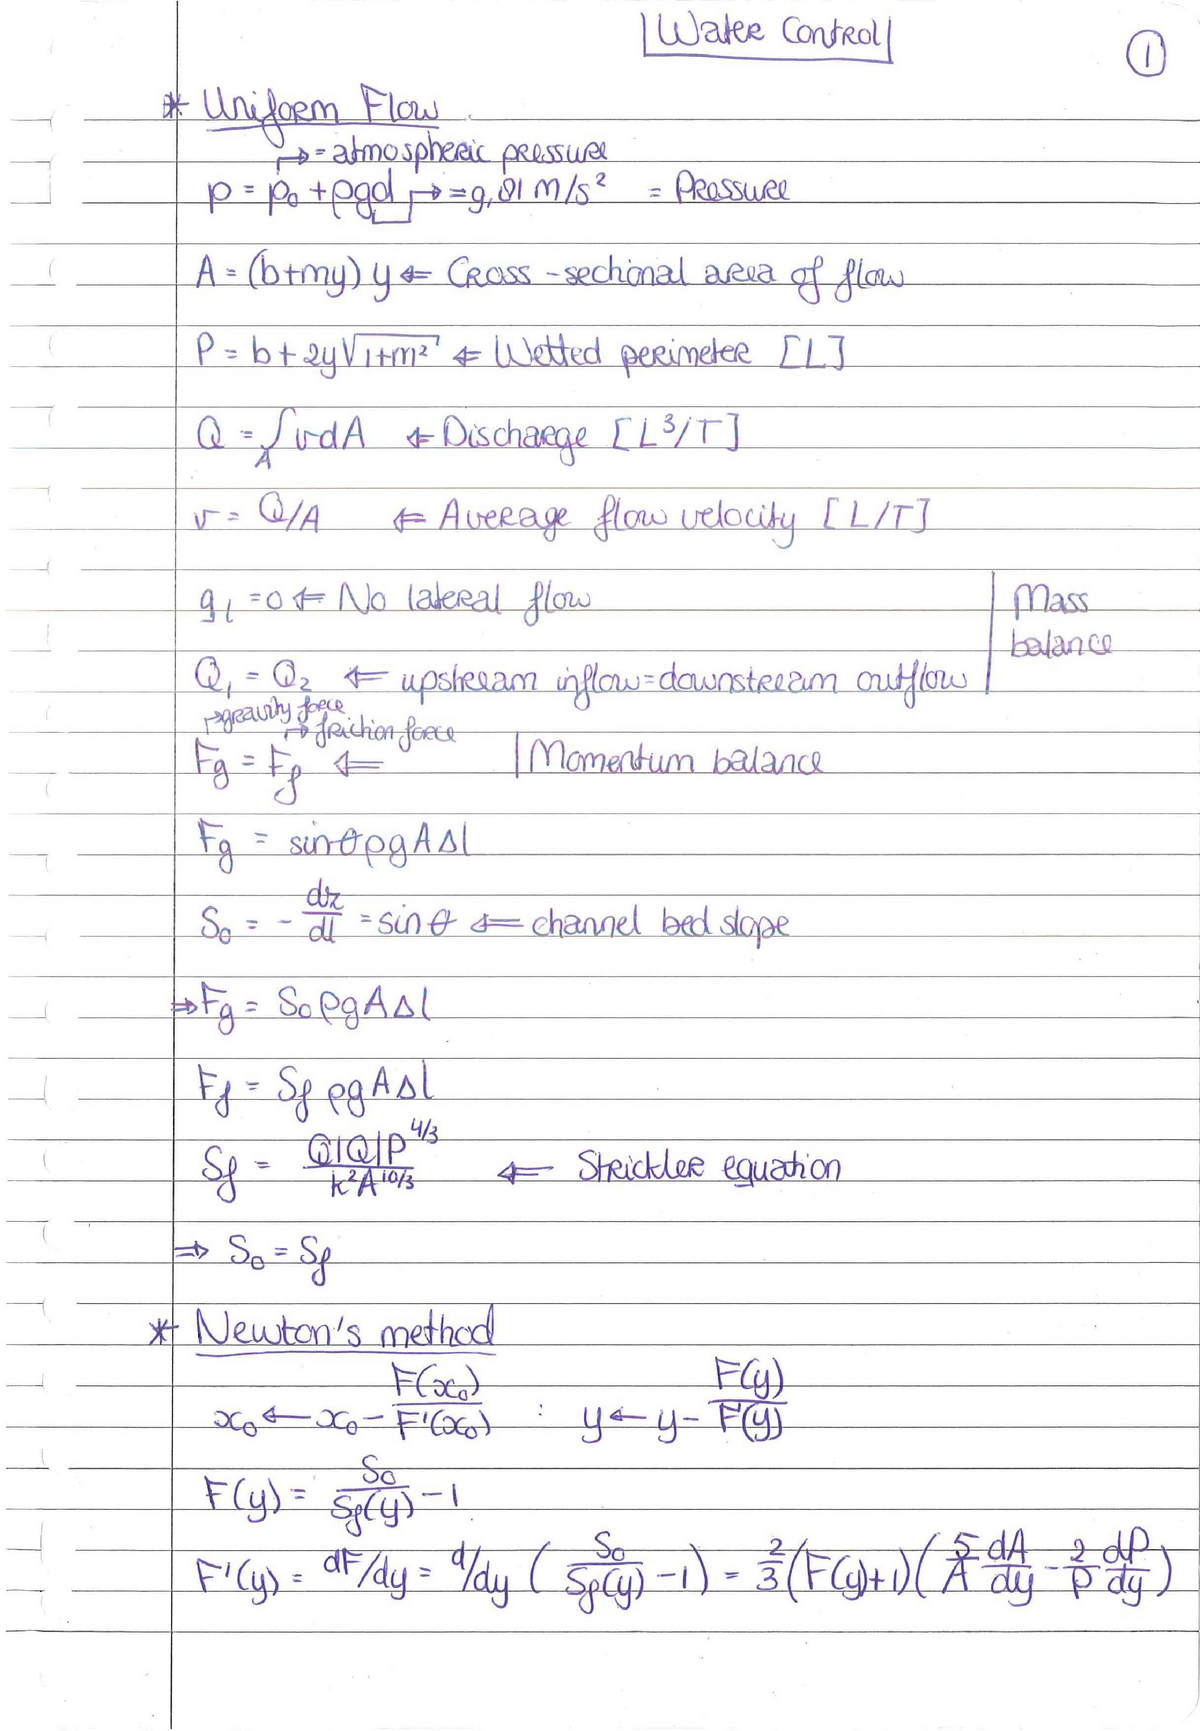 Water Control
1
* Uniform Flow
→ = atmospheric pressure
p = p₀ + ρgd → = 9,81 m/s² = Pressure
A = (b+my) y ⇐ Cross-sectional area of flow
P = b + 2y√(1+m²) ⇐ Wetted perimeter [L]
Q = ∫_A v dA ⇐ Discharge [L³/T]
v = Q/A ⇐ Average flow velocity [L/T]
q_l = 0 ⇐ No lateral flow | Mass balance
Q₁ = Q₂ ⇐ upstream inflow = downstream outflow |
→ gravity force
→ friction force
F_g = F_f ⇐ | Momentum balance
F_g = sinθρgAΔl
S₀ = - dz/dl = sinθ ⇐ channel bed slope
⇒ F_g = S₀ρgAΔl
F_f = S_f ρgAΔl
S_f = Q|Q|P^4/3 / k²A^10/3 ⇐ Strickler equation
⇒ S₀ = S_f
* Newton's method
x₀ ← x₀ - F(x₀)/F'(x₀) : y ← y - F(y)/F'(y)
F(y) = S₀/S_f(y) - 1
F'(y) = dF/dy = d/dy ( S₀/S_f(y) - 1) = 2/3 (F(y)+1) ( 5/A dA/dy - 2/P dP/dy )